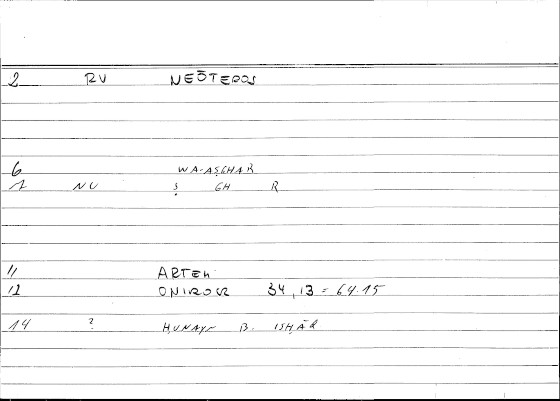 2 RV NEŌTEROS
6 WA-AṢGHAR
1 NV Ṣ GH R
11 ARTEM
12 ONIROCR 34,13 = 64.15
14 ? ḤUNAYN B. ISḤĀQ